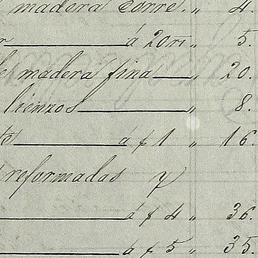 madera corre. " 4.
r á 20 rs " 5.
e madera fina " 20.
lienzos " 8.
to á $ 1 " 16.
reformadas y
á $ 4 " 36.
á $ 5 " 35.